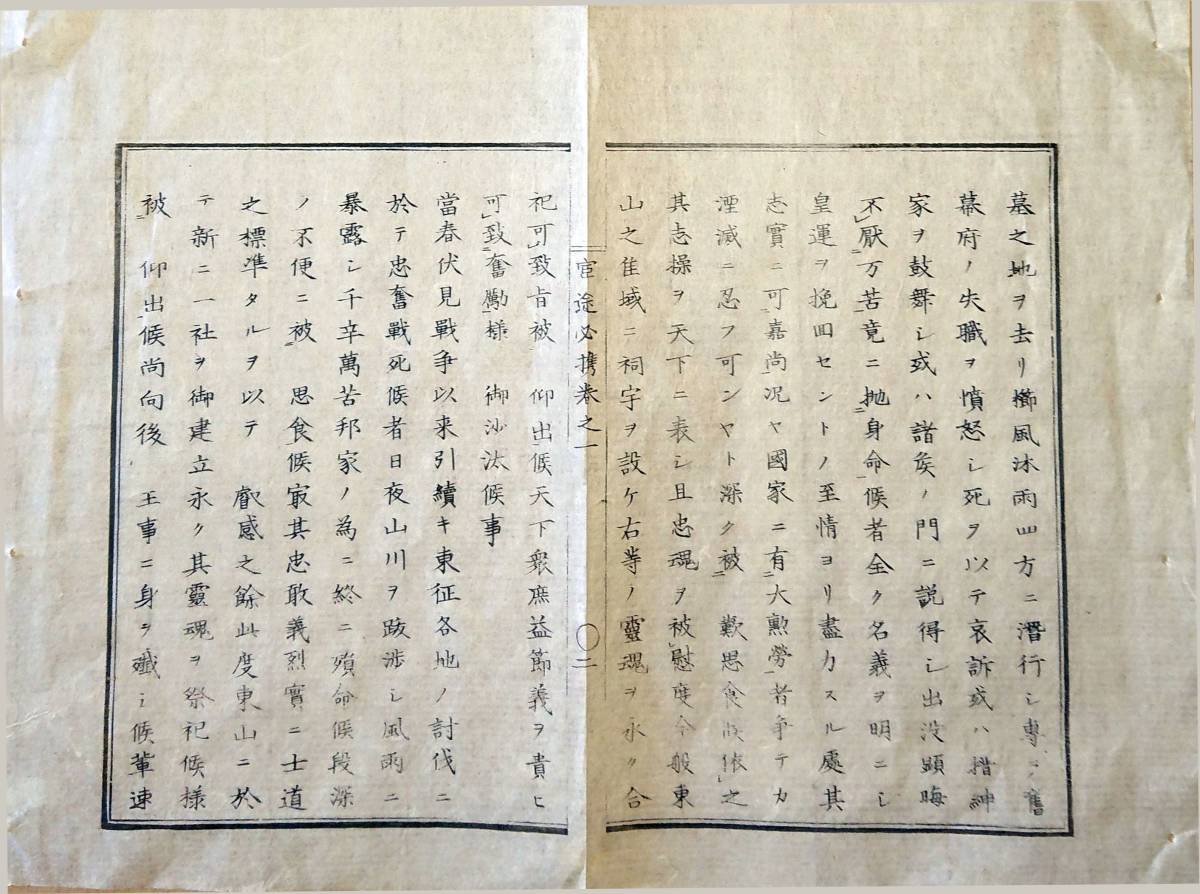 墓之地ヲ去リ櫛風沐雨四方ニ潛行シ專ラ舊
幕府ノ失職ヲ憤怒シ死ヲ以テ哀訴或ハ搢紳
家ヲ鼓舞シ或ハ諸矦ノ門ニ説得シ出没顕晦
不厭万苦竟ニ抛身命候者全ク名義ヲ明ニシ
皇運ヲ挽回セントノ至情ヨリ盡力スル處其
志實ニ可嘉尚况ヤ國家ニ有大勲勞者争テカ
湮滅ニ忍フ可ンヤト深ク被 歎思食候依之
其志操ヲ天下ニ表シ且忠魂ヲ被慰度今般東
山之佳域ニ祠宇ヲ設ケ右等ノ靈魂ヲ永ク合
官途必携巻之一 〇二
祀可致旨被 仰出候天下衆庶益節義ヲ貴ヒ
可致奮勵様 御沙汰候事
當春伏見戰争以来引續キ東征各地ノ討伐ニ
於テ忠奮戰死候者日夜山川ヲ跋渉シ風雨ニ
暴露シ千辛萬苦邦家ノ為ニ終ニ殞命候段深
ノ不便ニ被 思食候㝡其忠敢義烈實ニ士道
之標準タルヲ以テ 叡感之餘此度東山ニ於
テ新ニ一社ヲ御建立永ク其靈魂ヲ祭祀候様
被 仰出候尚向後 王事ニ身ヲ殲シ候輩速